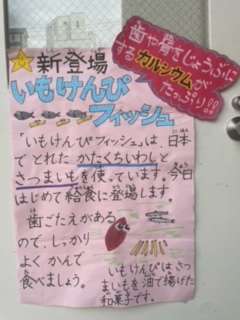 歯や骨をじょうぶに
するカルシウムが
たっぷり!!
新登場
いもけんぴ
フィッシュ
「いもけんぴフィッシュ」は、日本
でとれた かたくちいわしと
さつまいもを使っています。今日
はじめて給食に登場します。
歯ごたえがある
ので、しっかり
よく かんで
食べましょう。
いもけんぴはさつ
まいもを油で揚げた
和菓子です。